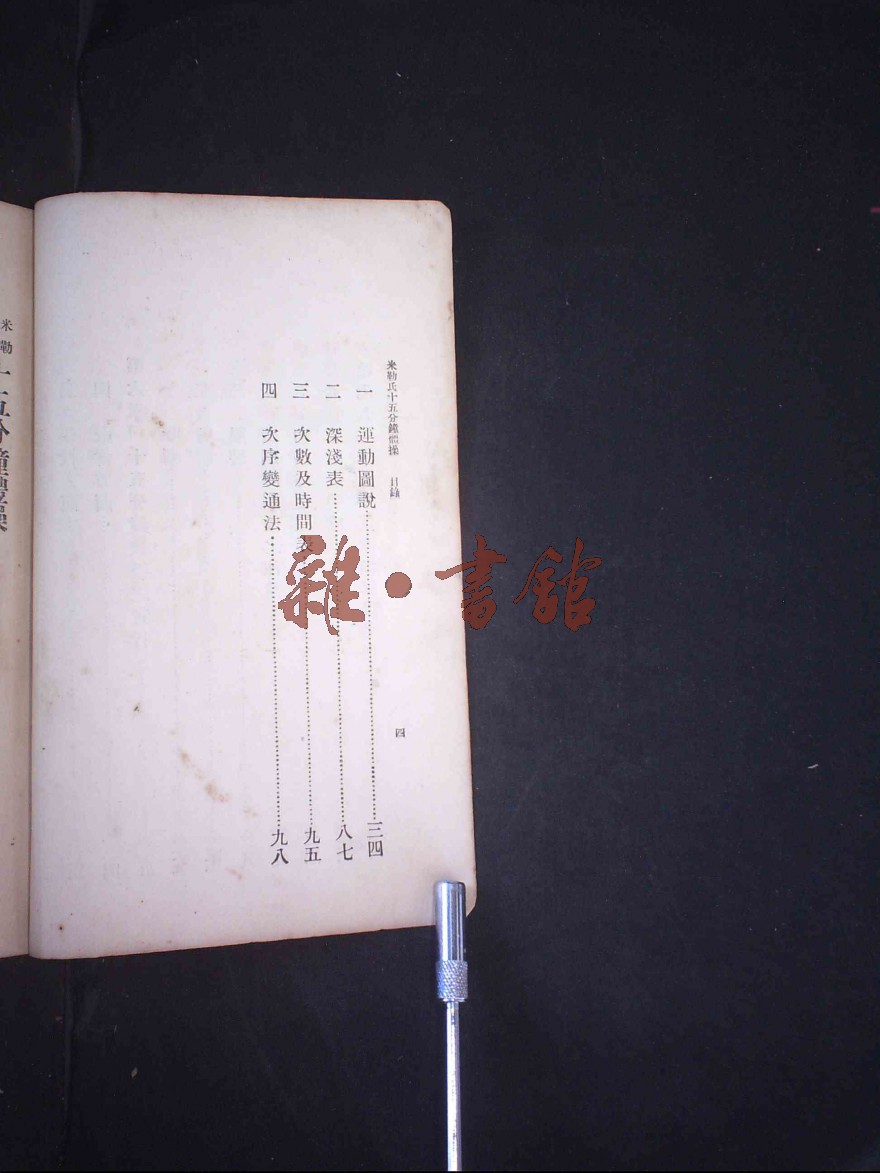 米勒氏十五分鐘體操 目錄 四
一 運動圖說 三四
二 深淺表 八七
三 次數及時間表 九五
四 次序變通法 九八
米勒
十五分鐘體操
雜·書館